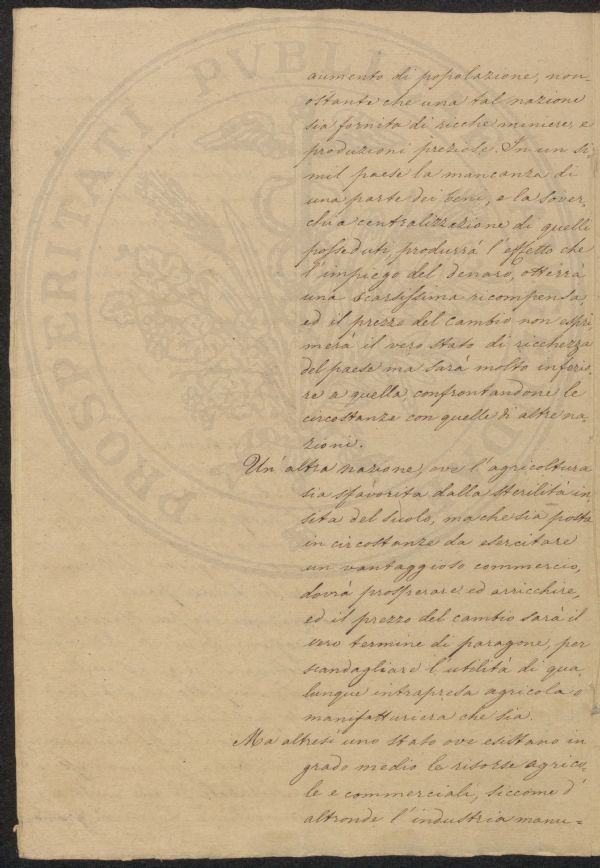 aumento di popolazione, non=
ostante che una tal nazione
sia fornita di ricche miniere, e
produzioni preziose. In un si=
mil paese la mancanza di
una parte dei beni, e la sover,
chia centralizzazione di quelli
posseduti, produrrà l'effetto che
l'impiego del denaro, otterrà
una scarsissima ricompensa,
ed il prezzo del cambio non espri
merà il vero stato di ricchezza
del paese ma sarà molto inferio,
re a quella, confrontandone le
circostanze con quelle di altre na,
zioni.
Un'altra nazione, ove l'agricoltura
sia sfavorita dalla sterilità in,
sita del suolo, ma che sia posta
in circostanze da esercitare
un vantaggioso commercio,
dovrà prosperare, ed arricchire,
ed il prezzo del cambio sarà il
vero termine di paragone, per
scandagliare l'utilità di qua,
lunque intrapresa agricola o
manifatturiera che sia.
Ma altresì uno stato ove esistano in
grado medio le risorse agrico,
le e commerciali, siccome d'
altronde l'industria manu=
PROSPERITATI PVBLI